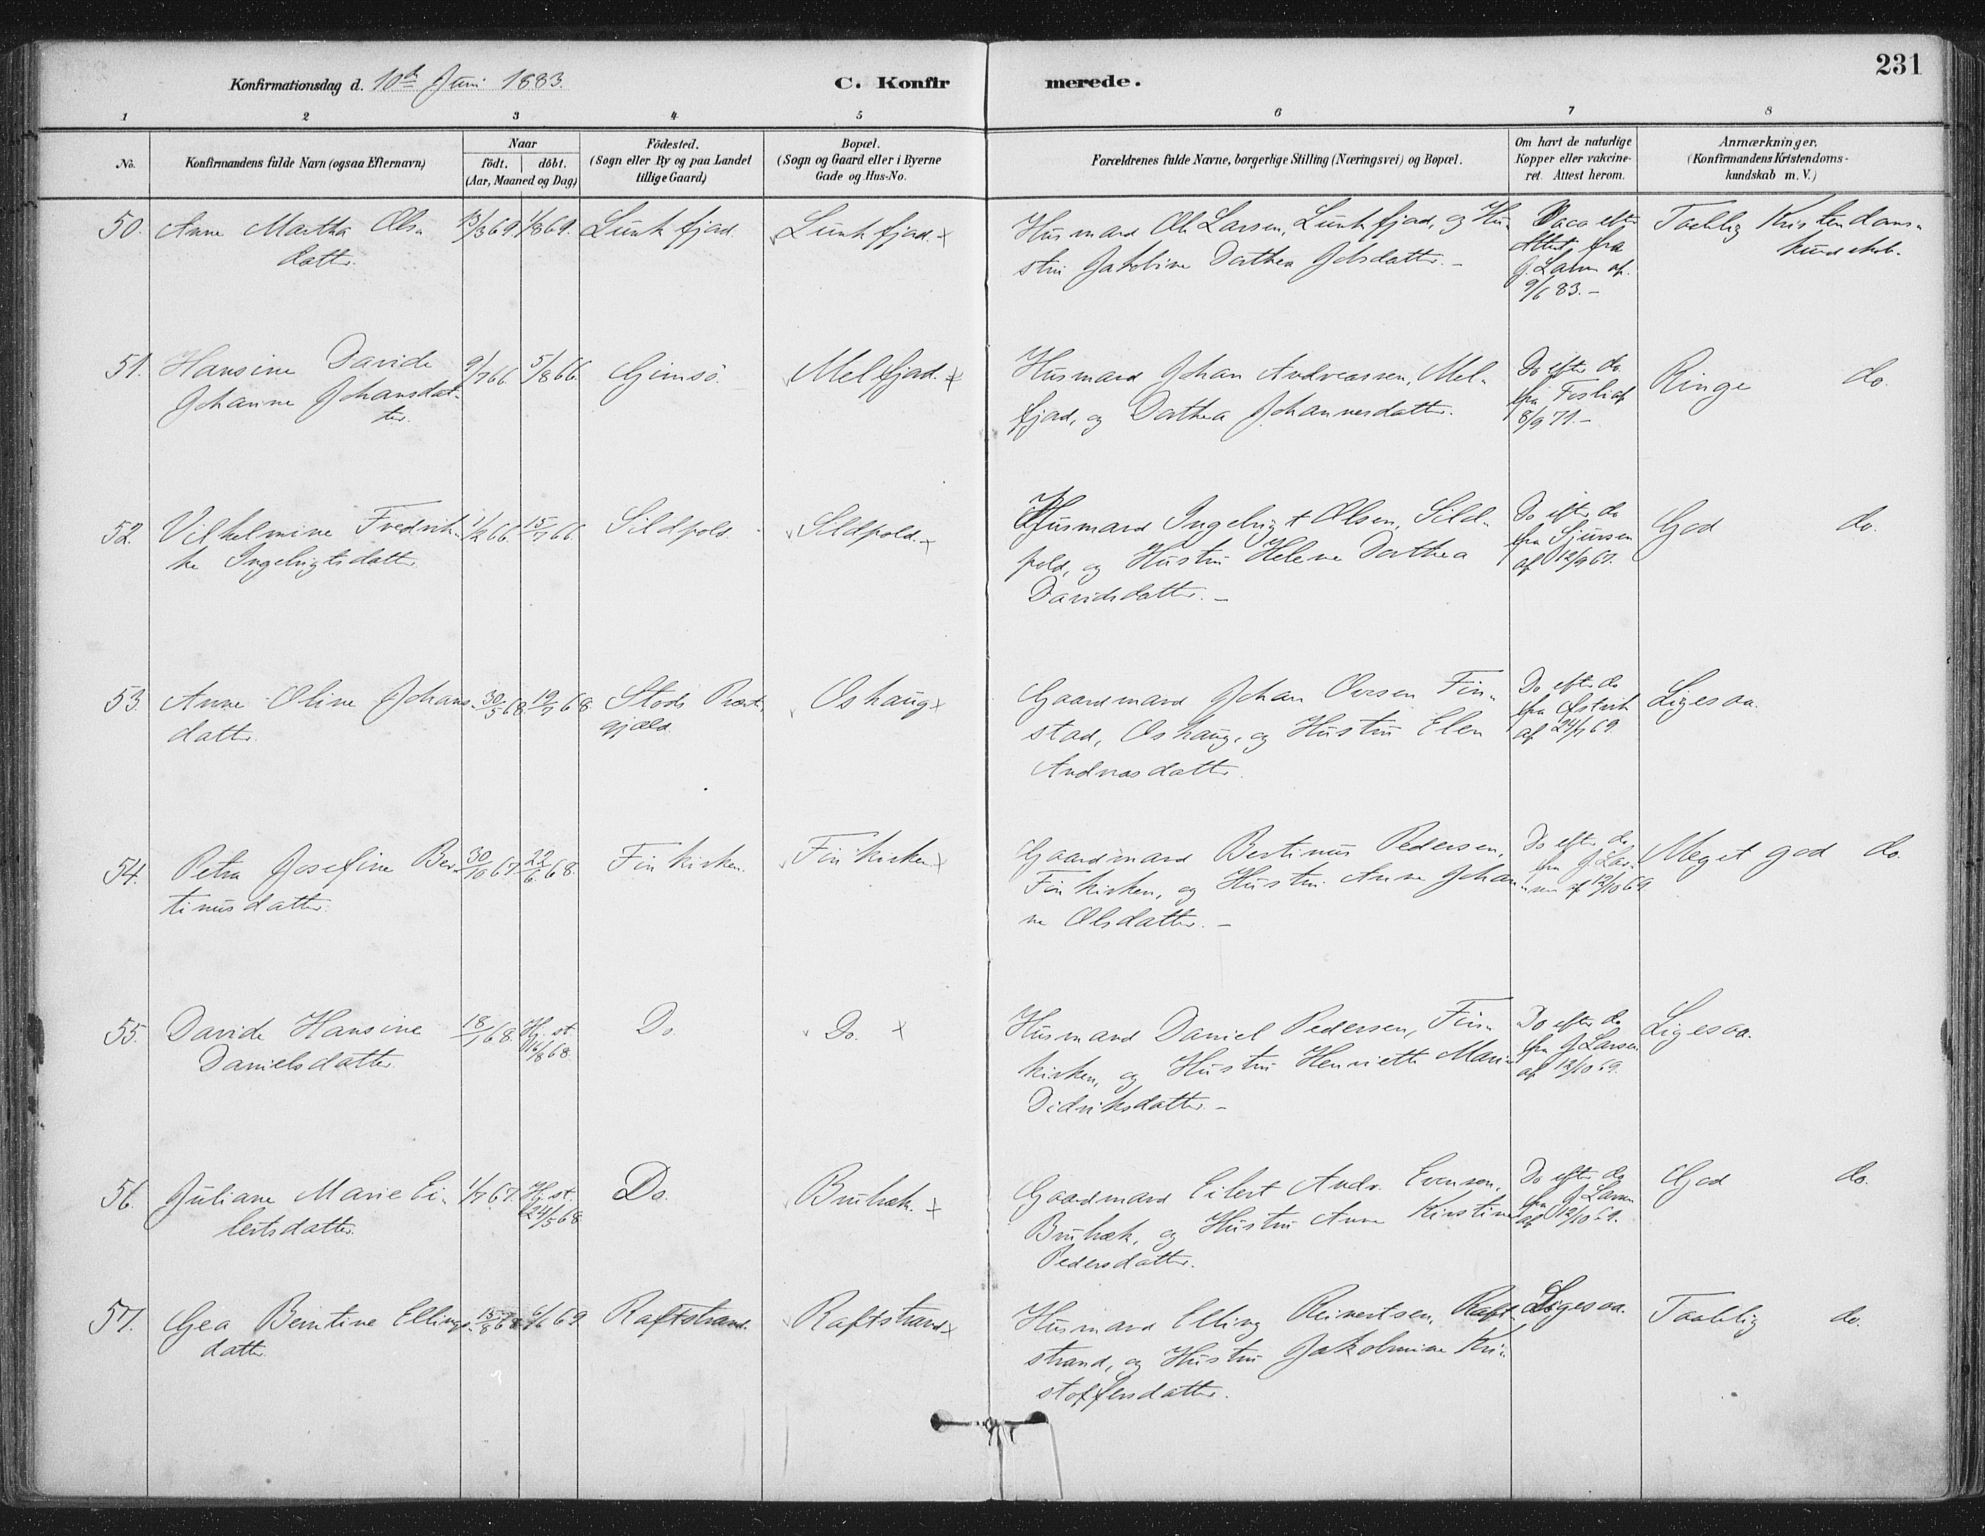 231
Konfirmationsdag d. 10de Juni 1883.
C. Konfirmerede.
1 2 3 4 5 6 7 8
No.
Konfirmandens fulde Navn (ogsaa Efternavn)
Naar
födt. döbt.
(Aar, Maaned og Dag)
Födested.
(Sogn eller By og paa Landet
tillige Gaard)
Bopæl.
(Sogn og Gaard eller i Byerne
Gade og Hus-No.
Forældrenes fulde Navne, borgerlige Stilling (Næringsvei) og Bopæl.
Om havt de naturlige
Kopper eller vakcine-
ret. Attest herom.
Anmærkninger.
(Konfirmandens Kristendoms-
kundskab m. V.)
50. Anne Martha Ols-
datter.
13/3 69 1/8 69.
Lunkfjad
Lunkfjad. x
Husmand Ole Larsen, Lunkfjad, og Hu-
stru Jakobine Dorthea Jebsdatter. -
Vacc efter
Attest fra
J. Larsen af
9/6 83. -
Taalelig Kristendoms-
kundskab.
51. Hansine Davide
Johanne Johansdat-
ter.
9/7 66 5/8 66.
Gimsö.
Melfjad. x
Husmand Johan Andreassen, Mel-
fjad, og Dorthea Johannesdatter.
Do efter do
fra Foslid
8/9 71. -
Ringe do.
52. Vilhelmine Fredrik-
ke Ingebrigtsdatter.
1/2 66. 15/7 66.
Sildpold.
Sildpold. x
Husmand Ingebrigt Olsen, Sild-
pold, og Hustru Helene Dorthea
Davidsdatter. -
Do efter do
fra Sjursen
af 12/9 67.
God do.
53. Anne Oline Johans-
datter.
30/5 68 19/7 68
Stods Præst-
gjæld
Oshaug x
Gaardmand Johan Oversen Fin-
stad, Oshaug, og Hustru Elen
Andreasdatter.
Do efter do
fra
af 24/1 69.
Ligesaa.
54. Petra Josefine Ber-
tinusdatter.
30/10 67. 22/6 68.
Finkirken.
Finkirken x
Gaardmand Bertinus Pedersen,
Finkirken, og Hustru Anne Johan-
ne Olsdatter. -
Do efter do
fra J. Lar-
sen af 12/10 69
Meget god do.
55. Davide Hansine
Danielsdatter.
18/1 68. Hj. st.
16/8 68.
Do.
Do. x
Husmand Daniel Pedersen, Fin-
kirken, og Hustru Henriette Marie
Didriksdatter. -
Do efter do
fra J Larsen
af 12/10 69.
Ligesaa.
56. Juliane Marie Ei-
lertsdatter.
1/7 67. Hj. st.
24/5 68
Do.
Bruhæk. x
Gaardmand Eilert Andr. Evensen,
Bruhæk, og Hustru Anne Kirstine
Pedersdatter.
Do efter do
fra J Larsen
af 12/10 69.
God do.
57. Gea Berntine Ellings-
datter.
15/8 68 6/6 69
Raftstrand.
Raftstrand x
Husmand Elling Reinertsen, Raft-
strand, og Hustru Jakobmine Kri-
stoffersdatter.
Ligesaa.
Taalelig do.